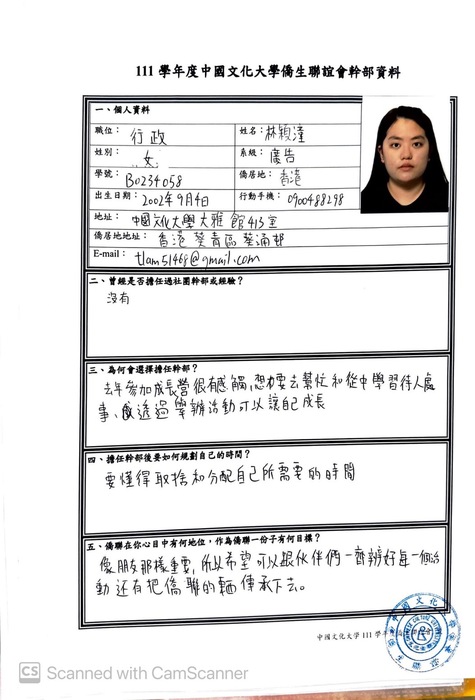 111 學年度中國文化大學僑生聯誼會幹部資料
一、個人資料
職位： 行政 姓名： 林穎潼
性別： 女 系級： 廣告
學號： B0234058 僑居地： 香港
出生日期： 2002年9月4日 行動手機： 0900488298
地址： 中國文化大學大雅館413室
僑居地地址： 香港葵青區葵涌邨
E-mail： tlam51468@gmail.com
二、曾經是否擔任過社團幹部或經驗？
沒有
三、為何會選擇擔任幹部？
去年參加成長營很有感觸,想要去幫忙和從中學習待人處
事、透過舉辦活動可以讓自己成長
四、擔任幹部後要如何規劃自己的時間？
要懂得取捨和分配自己所需要的時間
五、僑聯在你心目中有何地位，作為僑聯一份子有何目標？
像朋友那樣重要,所以希望可以跟伙伴們一齊辦好每一個活
動還有把僑聯的輛傳承下去。
中國文化大學 111 學年
CS Scanned with CamScanner